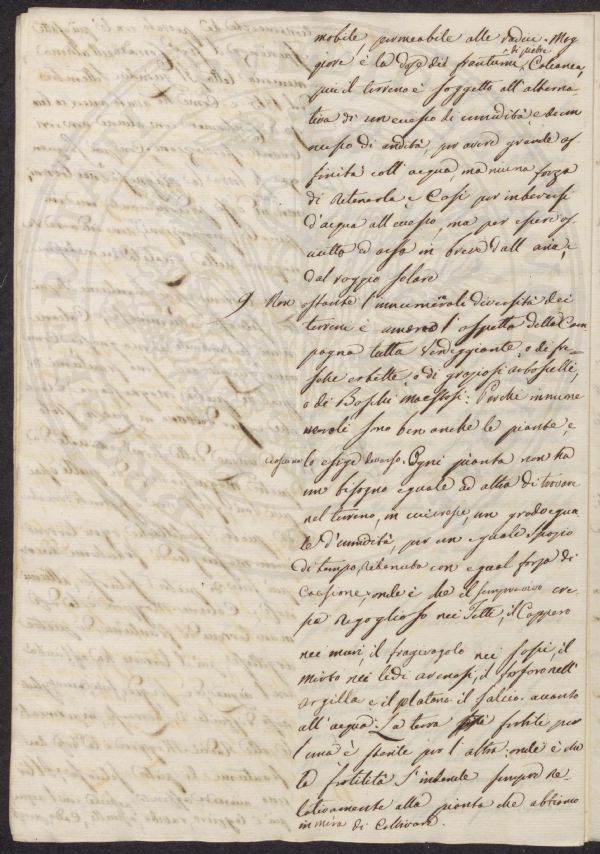 mobile, permeabile alle radici. Mag
giore è la dose dei frantumi di pietre Calcarea,
più il terreno è soggetto all'alterna
tiva di un eccesso di umidità e di un
eccesso di aridità, per avere grande af
finità coll'acqua, ma niuna forza
di ritenerla e Così per imbeversi
d'acqua all'eccesso, ma per essere as
ciutto ed arso in breve dall'aria, e
dal raggio solare
9 Non ostante l'innumerevole diversità dei
terreni è ameno l'aspetto della Cam
pagna tutta verdeggiante, o di fre-
sche erbette, o di graziosi arboscelli,
o di Boschi maestosi: Perchè innume
revoli sono ben anche le piante, e
ciascuna lo esige diverso. Ogni pianta non ha
un bisogno eguale ad altra di trovare
nel terreno, in cui cresce, un grado egua
le d'umidità, per un eguale spazio
di tempo, ritenuta con egual forza di
Coesione; onde è che il semprevivo cre
sce rigoglioso nei Tetti, il Cappero
nei muri, il fragiragolo nei sassi, il
mirto nei lidi arenosi, il farfaro nell'
argilla e il platano il salcio accanto
all'acqua. La terra fertile per
l'una è sterile per l'altra: onde è che
la fertilità s'intende sempre re-
lativamente alla pianta che abbiamo
in mira di Coltivare.